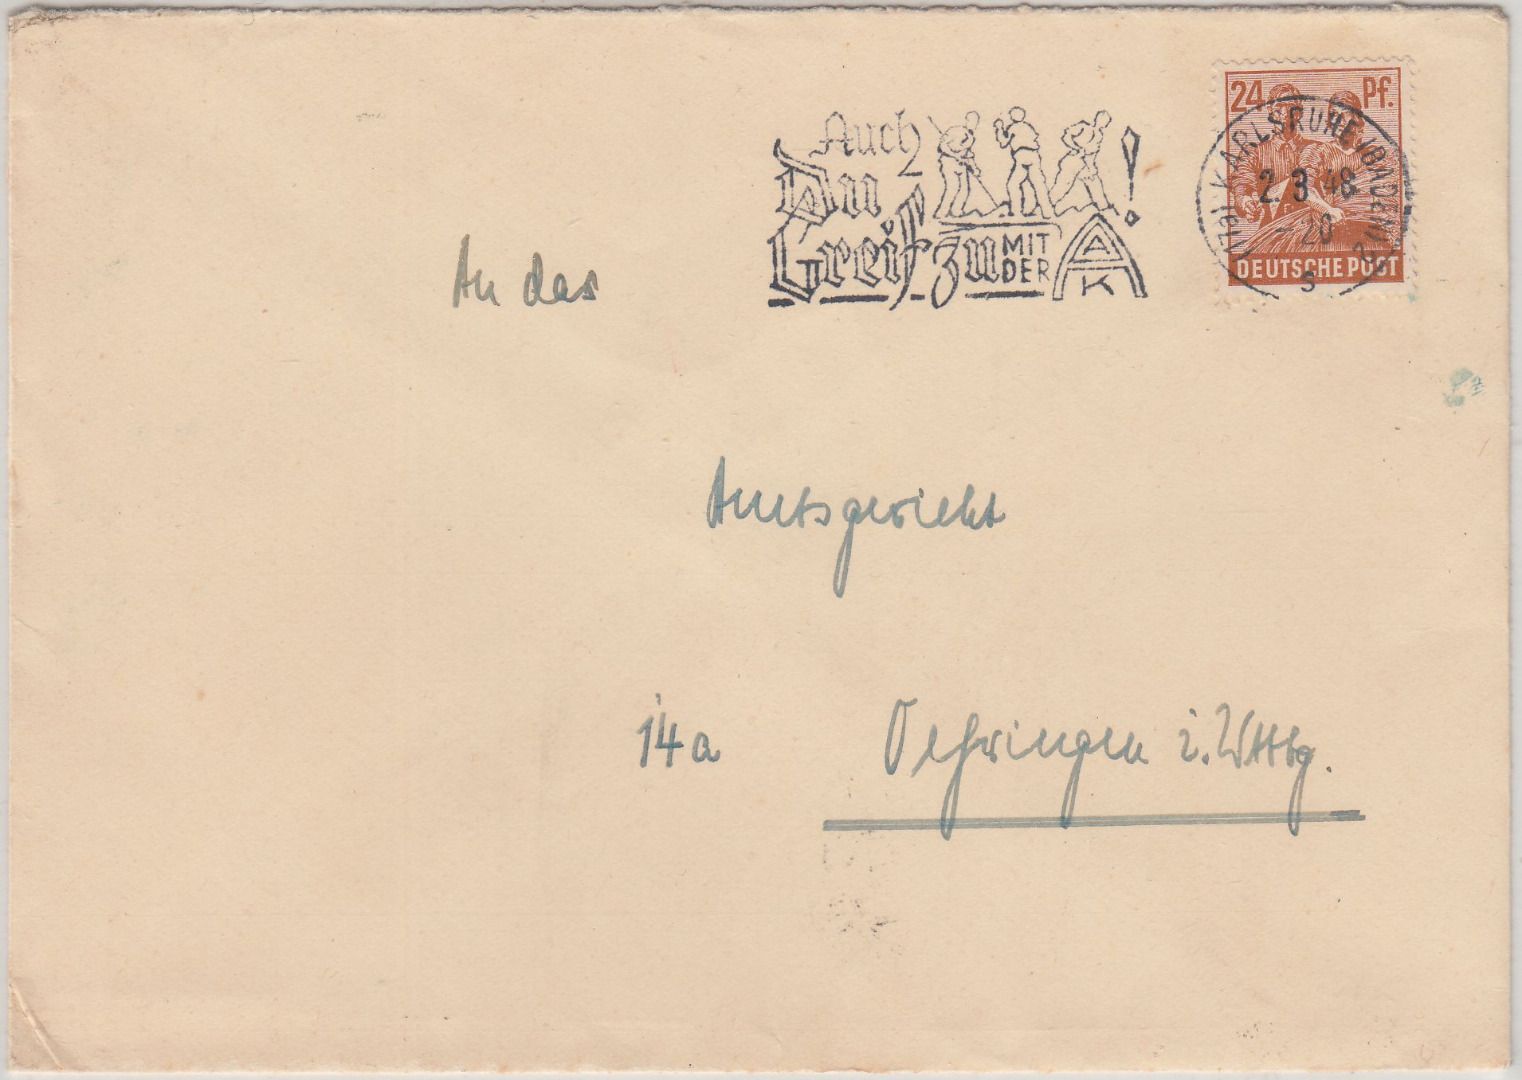 24 Pf.
(17a) KARLSRUHE (BADEN) 2
2.3.48
-20
s
DEUTSCHE POST
Auch
Du
Greif zu MIT DER AAK
!
An das
Amtsgericht
14a Oehringen i. Wttbg.